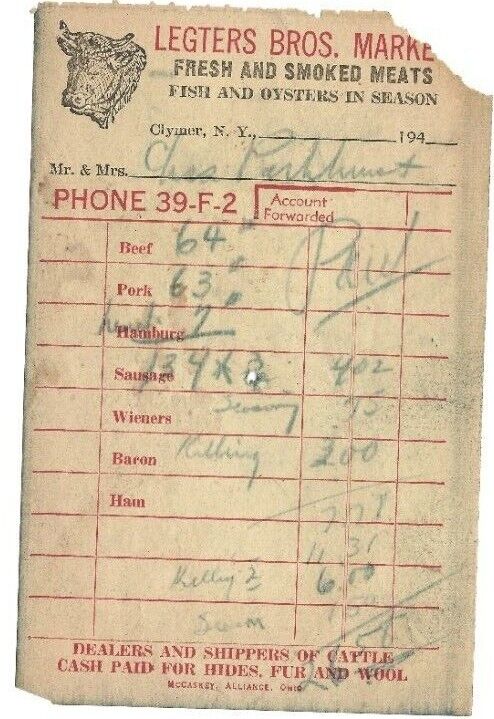 LEGTERS BROS. MARKE
FRESH AND SMOKED MEATS
FISH AND OYSTERS IN SEASON
Clymer, N. Y., 194
Mr. & Mrs. Chas Parkhurst
PHONE 39-F-2 Account Forwarded
Paid
Beef 64 "
Pork 63 "
Hamburg 7
Sausage 134 X 3 4 02
Wieners 75
Bacon Killing 3.00
Ham 7 77
11 31
6.00
DEALERS AND SHIPPERS OF CATTLE
CASH PAID FOR HIDES, FUR AND WOOL
McCASKEY, ALLIANCE, OHIO